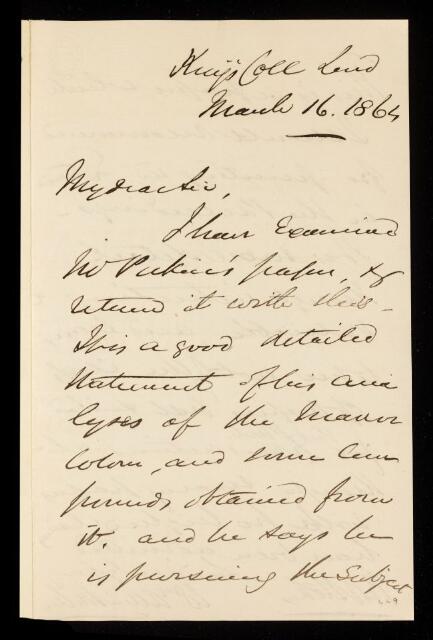 King's Coll Lond
March 16. 1864
My dear Sir,
I have Examined
Mr Perkin's paper, &
return it with this –
It is a good detailed
statement of his ana
lyses of the Mauve
Colour, and some Com
pounds obtained from
it. and he says he
is pursuing the Subject